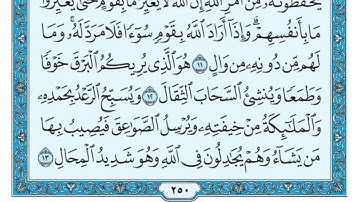 يَحْفَظُونَهُۥ مِنْ أَمْرِ ٱللَّهِ إِنَّ ٱللَّهَ لَا يُغَيِّرُ مَا بِقَوْمٍ حَتَّىٰ يُغَيِّرُوا۟
مَا بِأَنفُسِهِمْ وَإِذَآ أَرَادَ ٱللَّهُ بِقَوْمٍ سُوٓءًا فَلَا مَرَدَّ لَهُۥ وَمَا
لَهُم مِّن دُونِهِۦ مِن وَالٍ ١١ هُوَ ٱلَّذِى يُرِيكُمُ ٱلْبَرْقَ خَوْفًا
وَطَمَعًا وَيُنشِئُ ٱلسَّحَابَ ٱلثِّقَالَ ١٢ وَيُسَبِّحُ ٱلرَّعْدُ بِحَمْدِهِۦ
وَٱلْمَلَٰٓئِكَةُ مِنْ خِيفَتِهِۦ وَيُرْسِلُ ٱلصَّوَٰعِقَ فَيُصِيبُ بِهَا
مَن يَشَآءُ وَهُمْ يُجَٰدِلُونَ فِى ٱللَّهِ وَهُوَ شَدِيدُ ٱلْمِحَالِ ١٣
٢٥٠